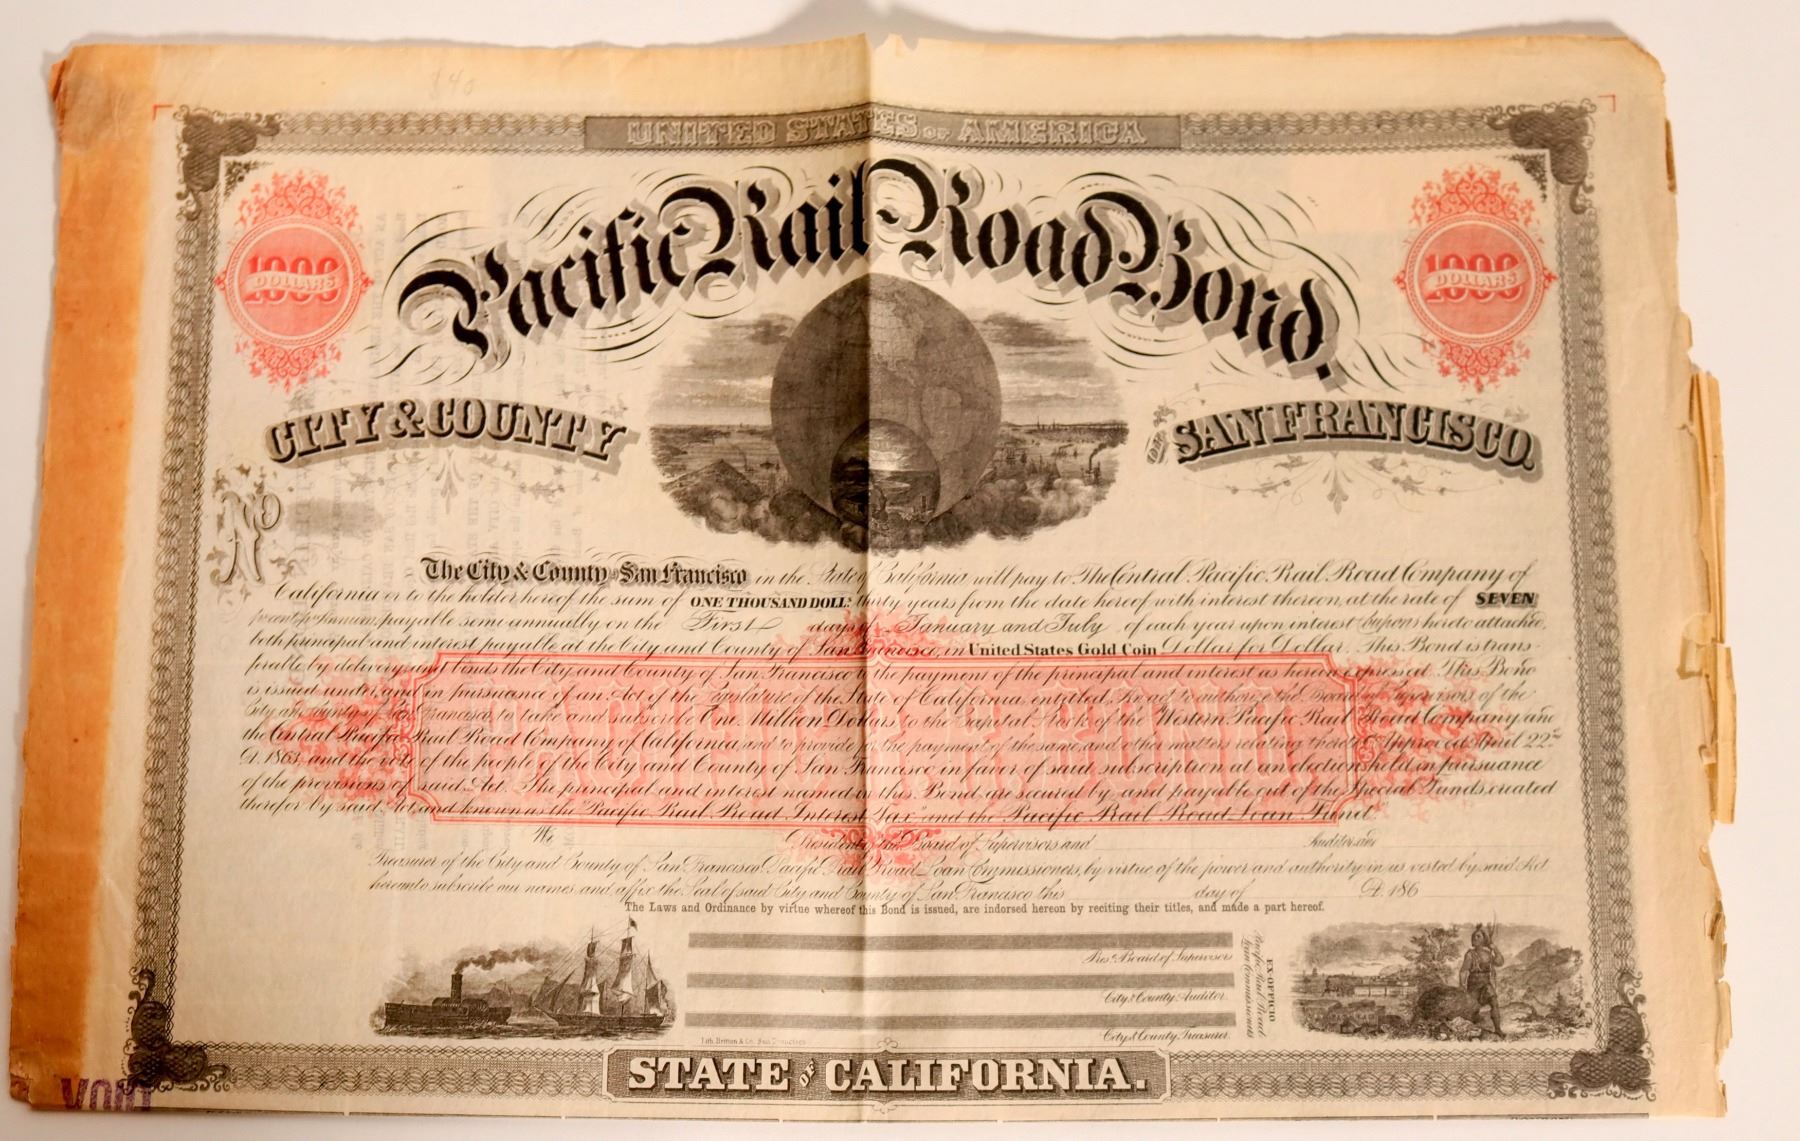 $40
UNITED STATES OF AMERICA
Pacific Rail Road Bond.
1000 DOLLARS
1000 DOLLARS
CITY & COUNTY OF SAN FRANCISCO.
No
The City & County of San Francisco in the State of California will pay to The Central Pacific Rail Road Company of
California or to the holder hereof the sum of ONE THOUSAND DOLLS thirty years from the date hereof with interest thereon, at the rate of SEVEN
per cent per Annum, payable semi-annually on the First days of January and July of each year upon interest Coupons hereto attached,
both principal and interest payable at the City and County of San Francisco, in United States Gold Coin Dollar for Dollar. This Bond is trans-
ferable by delivery and binds the City and County of San Francisco to the payment of the principal and interest as herein expressed. This Bond
is issued under and in pursuance of an Act of the Legislature of the State of California, entitled, An act to authorize the Board of Supervisors of the
City and County of San Francisco, to take and subscribe One Million Dollars to the Capital Stock of the Western Pacific Rail Road Company and
the Central Pacific Rail Road Company of California, and to provide for the payment of the same, and other matters relating thereto Approved April 22nd
A. 1863, and the vote of the people of the City and County of San Francisco in favor of said subscription at an election held in pursuance
of the provisions of said Act. The principal and interest named in this Bond, are secured by and payable out of the Special Funds created
therefor by said Act, and known as the "Pacific Rail Road Interest Tax" and the "Pacific Rail Road Loan Fund"
We President of the Board of Supervisors and Auditor and
Treasurer of the City and County of San Francisco Pacific Rail Road Loan Commissioners, by virtue of the power and authority in us vested by said Act
hereunto subscribe our names, and affix the Seal of said City and County of San Francisco this day of A. 186
The Laws and Ordinance by virtue whereof this Bond is issued, are indorsed hereon by reciting their titles, and made a part hereof.
Pres. Board of Supervisors
City & County Auditor
City & County Treasurer
EX-OFFICIO
Pacific Rail Road
Loan Commissioners
Lith. Britton & Co. San Francisco
STATE OF CALIFORNIA.